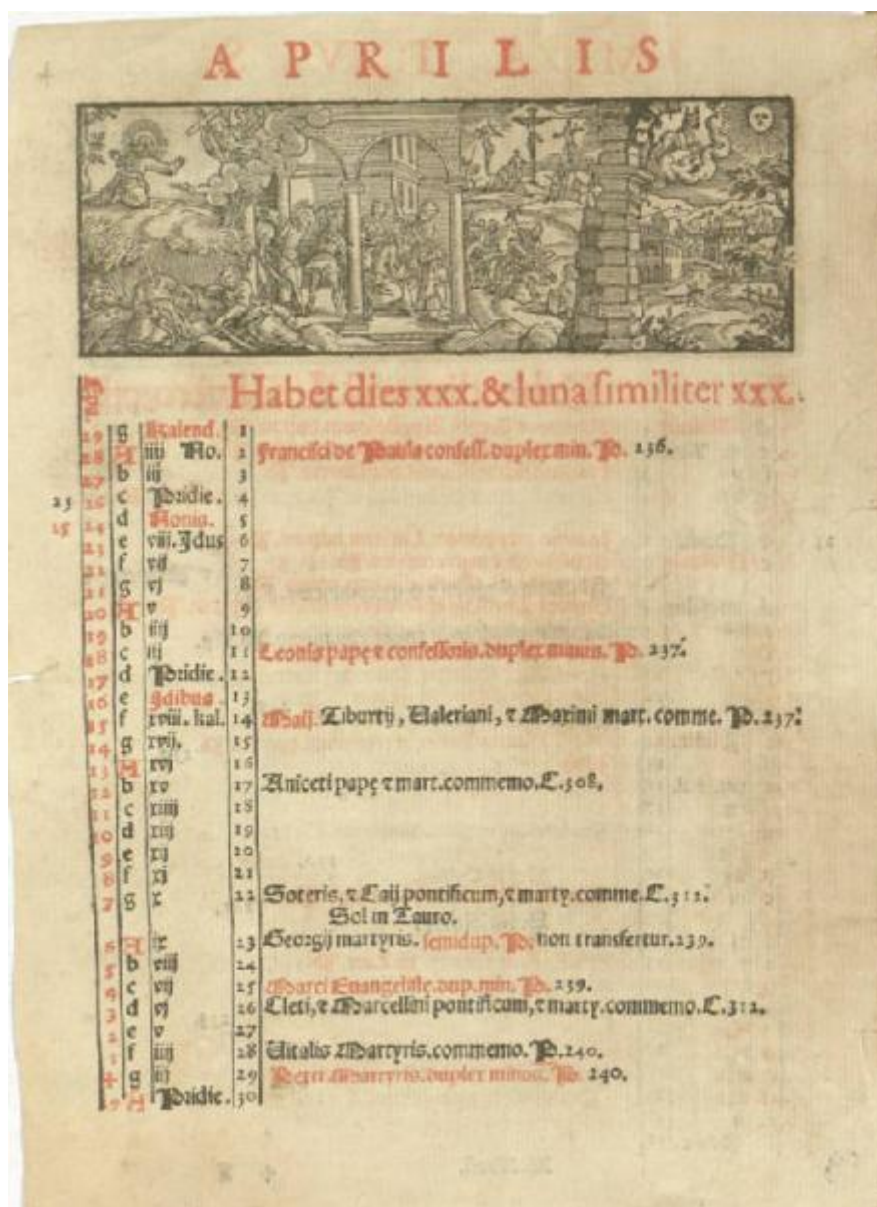 APRILIS
Epa.
Habet dies xxx. & luna similiter xxx.
29 g Kalend. 1
28 A iiij No. 2 Francisci de Paula confess. duplex min. P. 236.
27 b iij 3
25 26 c Pridie. 4
25 24 d Nonis. 5
23 e viij. Idus 6
22 f vij 7
21 g vj 8
20 A v 9
19 b iiij 10
18 c iij 11 Leonis papę & confessoris. duplex minus. P. 237.
17 d Pridie. 12
16 e Idibus. 13
15 f xviij. kal. 14 Maij. Tiburtij, Valeriani, & Maximi mart. comme. P. 237.
14 g xvij. 15
13 A xvj 16
12 b xv 17 Aniceti papę & mart. commemo. C. 308.
11 c xiiij 18
10 d xiij 19
9 e xij 20
8 f xj 21
7 g x 22 Soteris, & Caij pontificum, & marty. comme. C. 312.
Sol in Tauro.
6 A ix 23 Georgij martyris. semidup. P. non transfertur. 239.
5 b viij 24
4 c vij 25 Marci Euangelistę. dup. min. P. 239.
3 d vj 26 Cleti, & Marcellini pontificum, & marty. commemo. C. 312.
2 e v 27
1 f iiij 28 Vitalis Martyris. commemo. P. 240.
+ g iij 29 Petri Martyris. duplex minus. P. 240.
29 A Pridie. 30